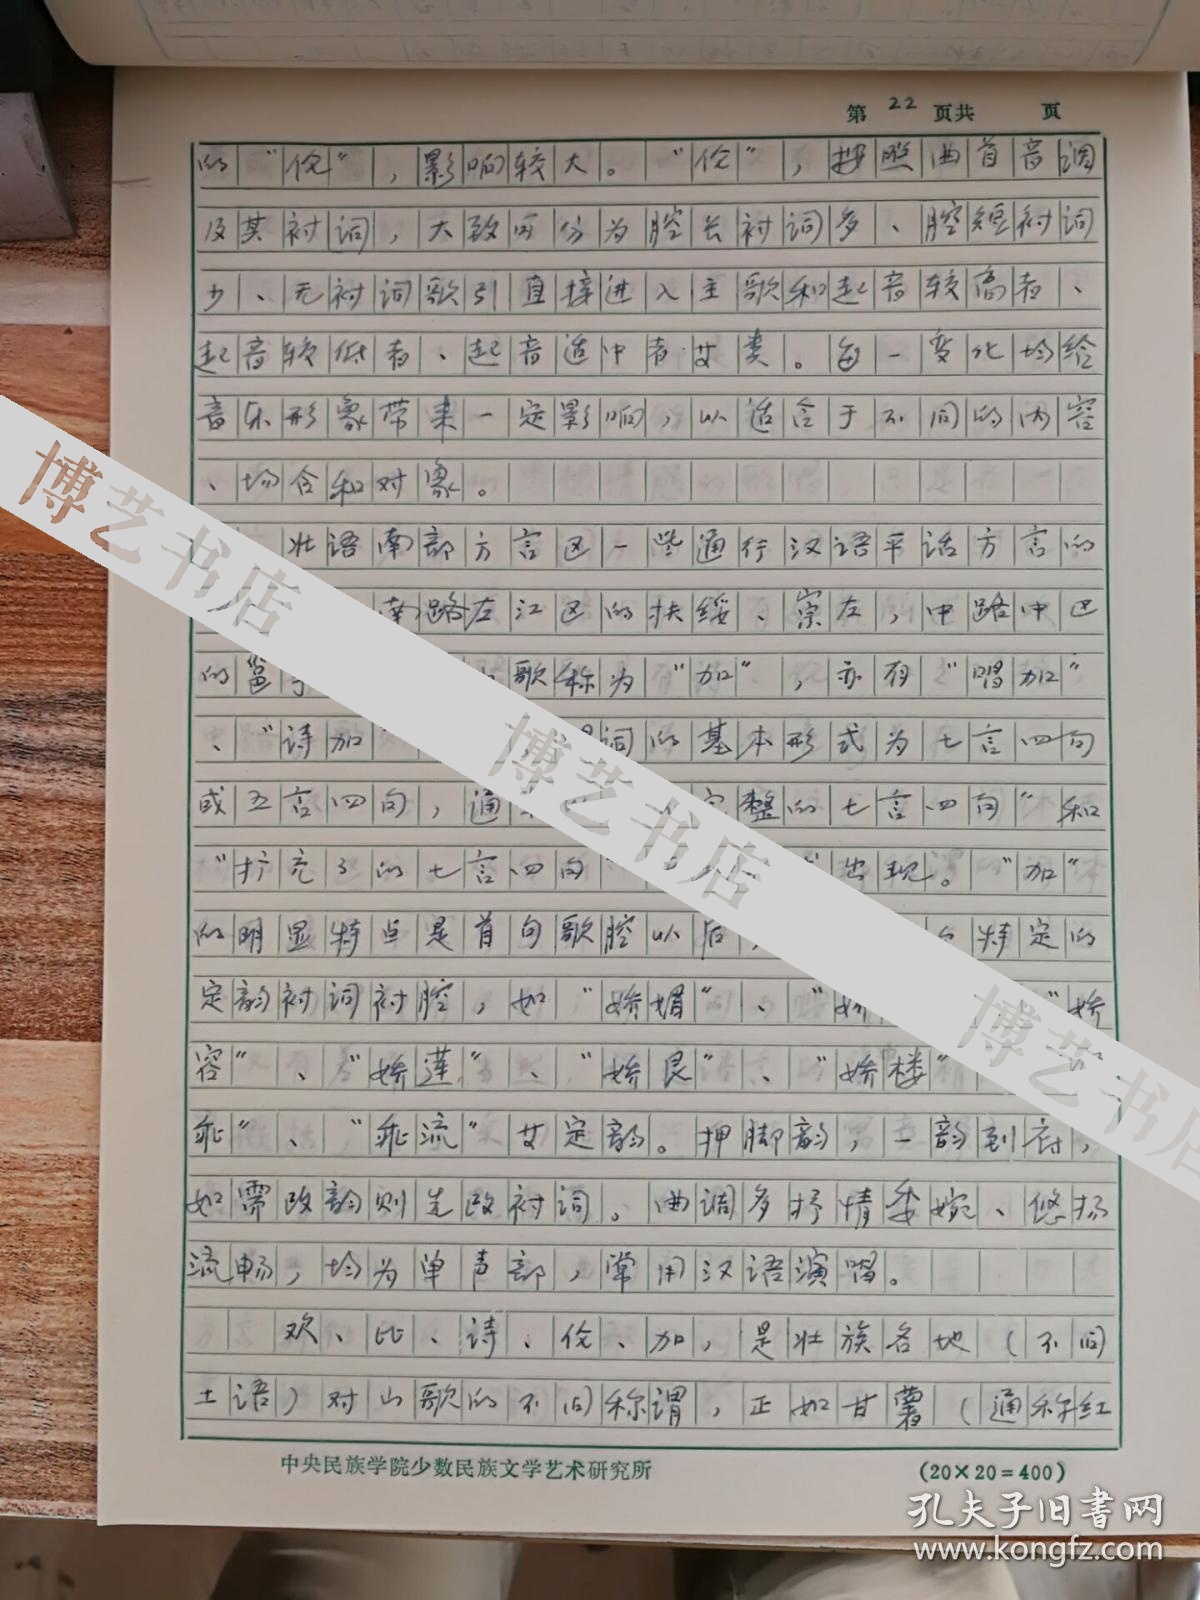 第 22 页共 页
的“伦”，影响较大。“伦”，按照曲首音调
及其衬词，大致可分为腔长衬词多、腔短衬词
少、无衬词歌引直接进入主歌和起音较高者、
起音较低者、起音适中者艾类。每一变化均给
音乐形象带来一定影响，以适合于不同的内容
、场合和对象。
壮语南部方言区一些通行汉语平话方言的
南路左江区的扶绥、崇左，中路中区
的邕宁 歌称为“加”，亦有“唱加”
、“诗加 词的基本形式为七言四句
或五言四句，通 完整的七言四句”和
“扩充了的七言四句 出现。“加”
的明显特点是首句歌腔以后， 特定的
定韵衬词衬腔，如“娇媚”、“娇 “娇
容”、“娇莲”、“娇良”、“娇楼”
乖”、“乖流”艾定韵。押脚韵，一韵到底，
如需改韵则先改衬词。曲调多抒情委婉、悠扬
流畅，均为单声部，常用汉语演唱。
欢、比、诗、伦、加，是壮族各地（不同
土语）对山歌的不同称谓，正如甘薯（通称红
中央民族学院少数民族文学艺术研究所 (20×20=400)
博艺书店
博艺书店
博艺书店
孔夫子旧书网
www.kongfz.com